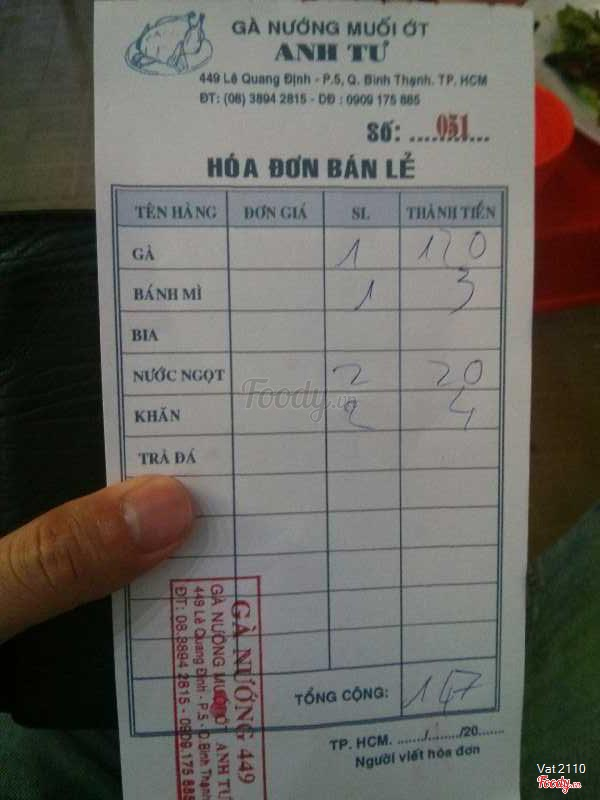 GÀ NƯỚNG MUỐI ỚT
ANH TƯ
449 Lê Quang Định - P.5, Q. Bình Thạnh. TP. HCM
ĐT: (08) 3894 2815 - DĐ : 0909 175 885
Số: ....051....
HÓA ĐƠN BÁN LẺ
TÊN HÀNG ĐƠN GIÁ SL THÀNH TIỀN
GÀ 1 120
BÁNH MÌ 1 3
BIA
NƯỚC NGỌT 2 20
KHĂN 2 4
TRÀ ĐÁ
Foody.vn
TỔNG CỘNG: 147
TP. HCM. ......./......./20.......
Người viết hóa đơn
GÀ NƯỚNG 449
GÀ NƯỚNG MUỐI ỚT ANH TƯ
449 Lê Quang Định - P.5 - Q.Bình Thạnh
ĐT: 08.3894 2815 - 0909.175 885
Vat2110
Foody.vn